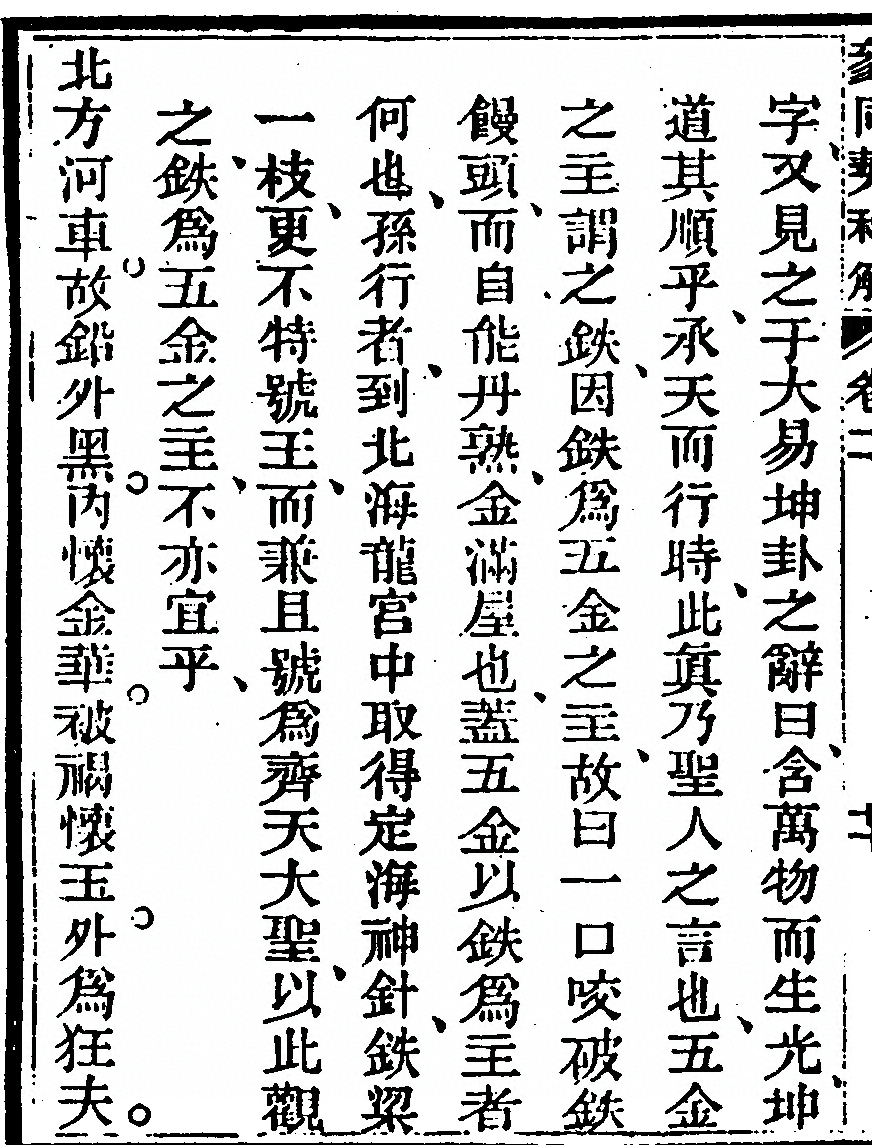 字又見之于大易坤卦之辭曰含萬物而生光坤
道其順乎承天而行時此眞乃聖人之言也五金
之主謂之鉄因鉄爲五金之主故曰一口咬破鉄
饅頭而自能丹熟金滿屋也葢五金以鉄爲主者
何也孫行者到北海龍宮中取得定海神針鉄梁
一枝更不特號王而兼且號爲齊天大聖以此觀
之鉄爲五金之主不亦宜乎
北方河車故鉛外黑內懷金華被褐懷玉外爲狂夫